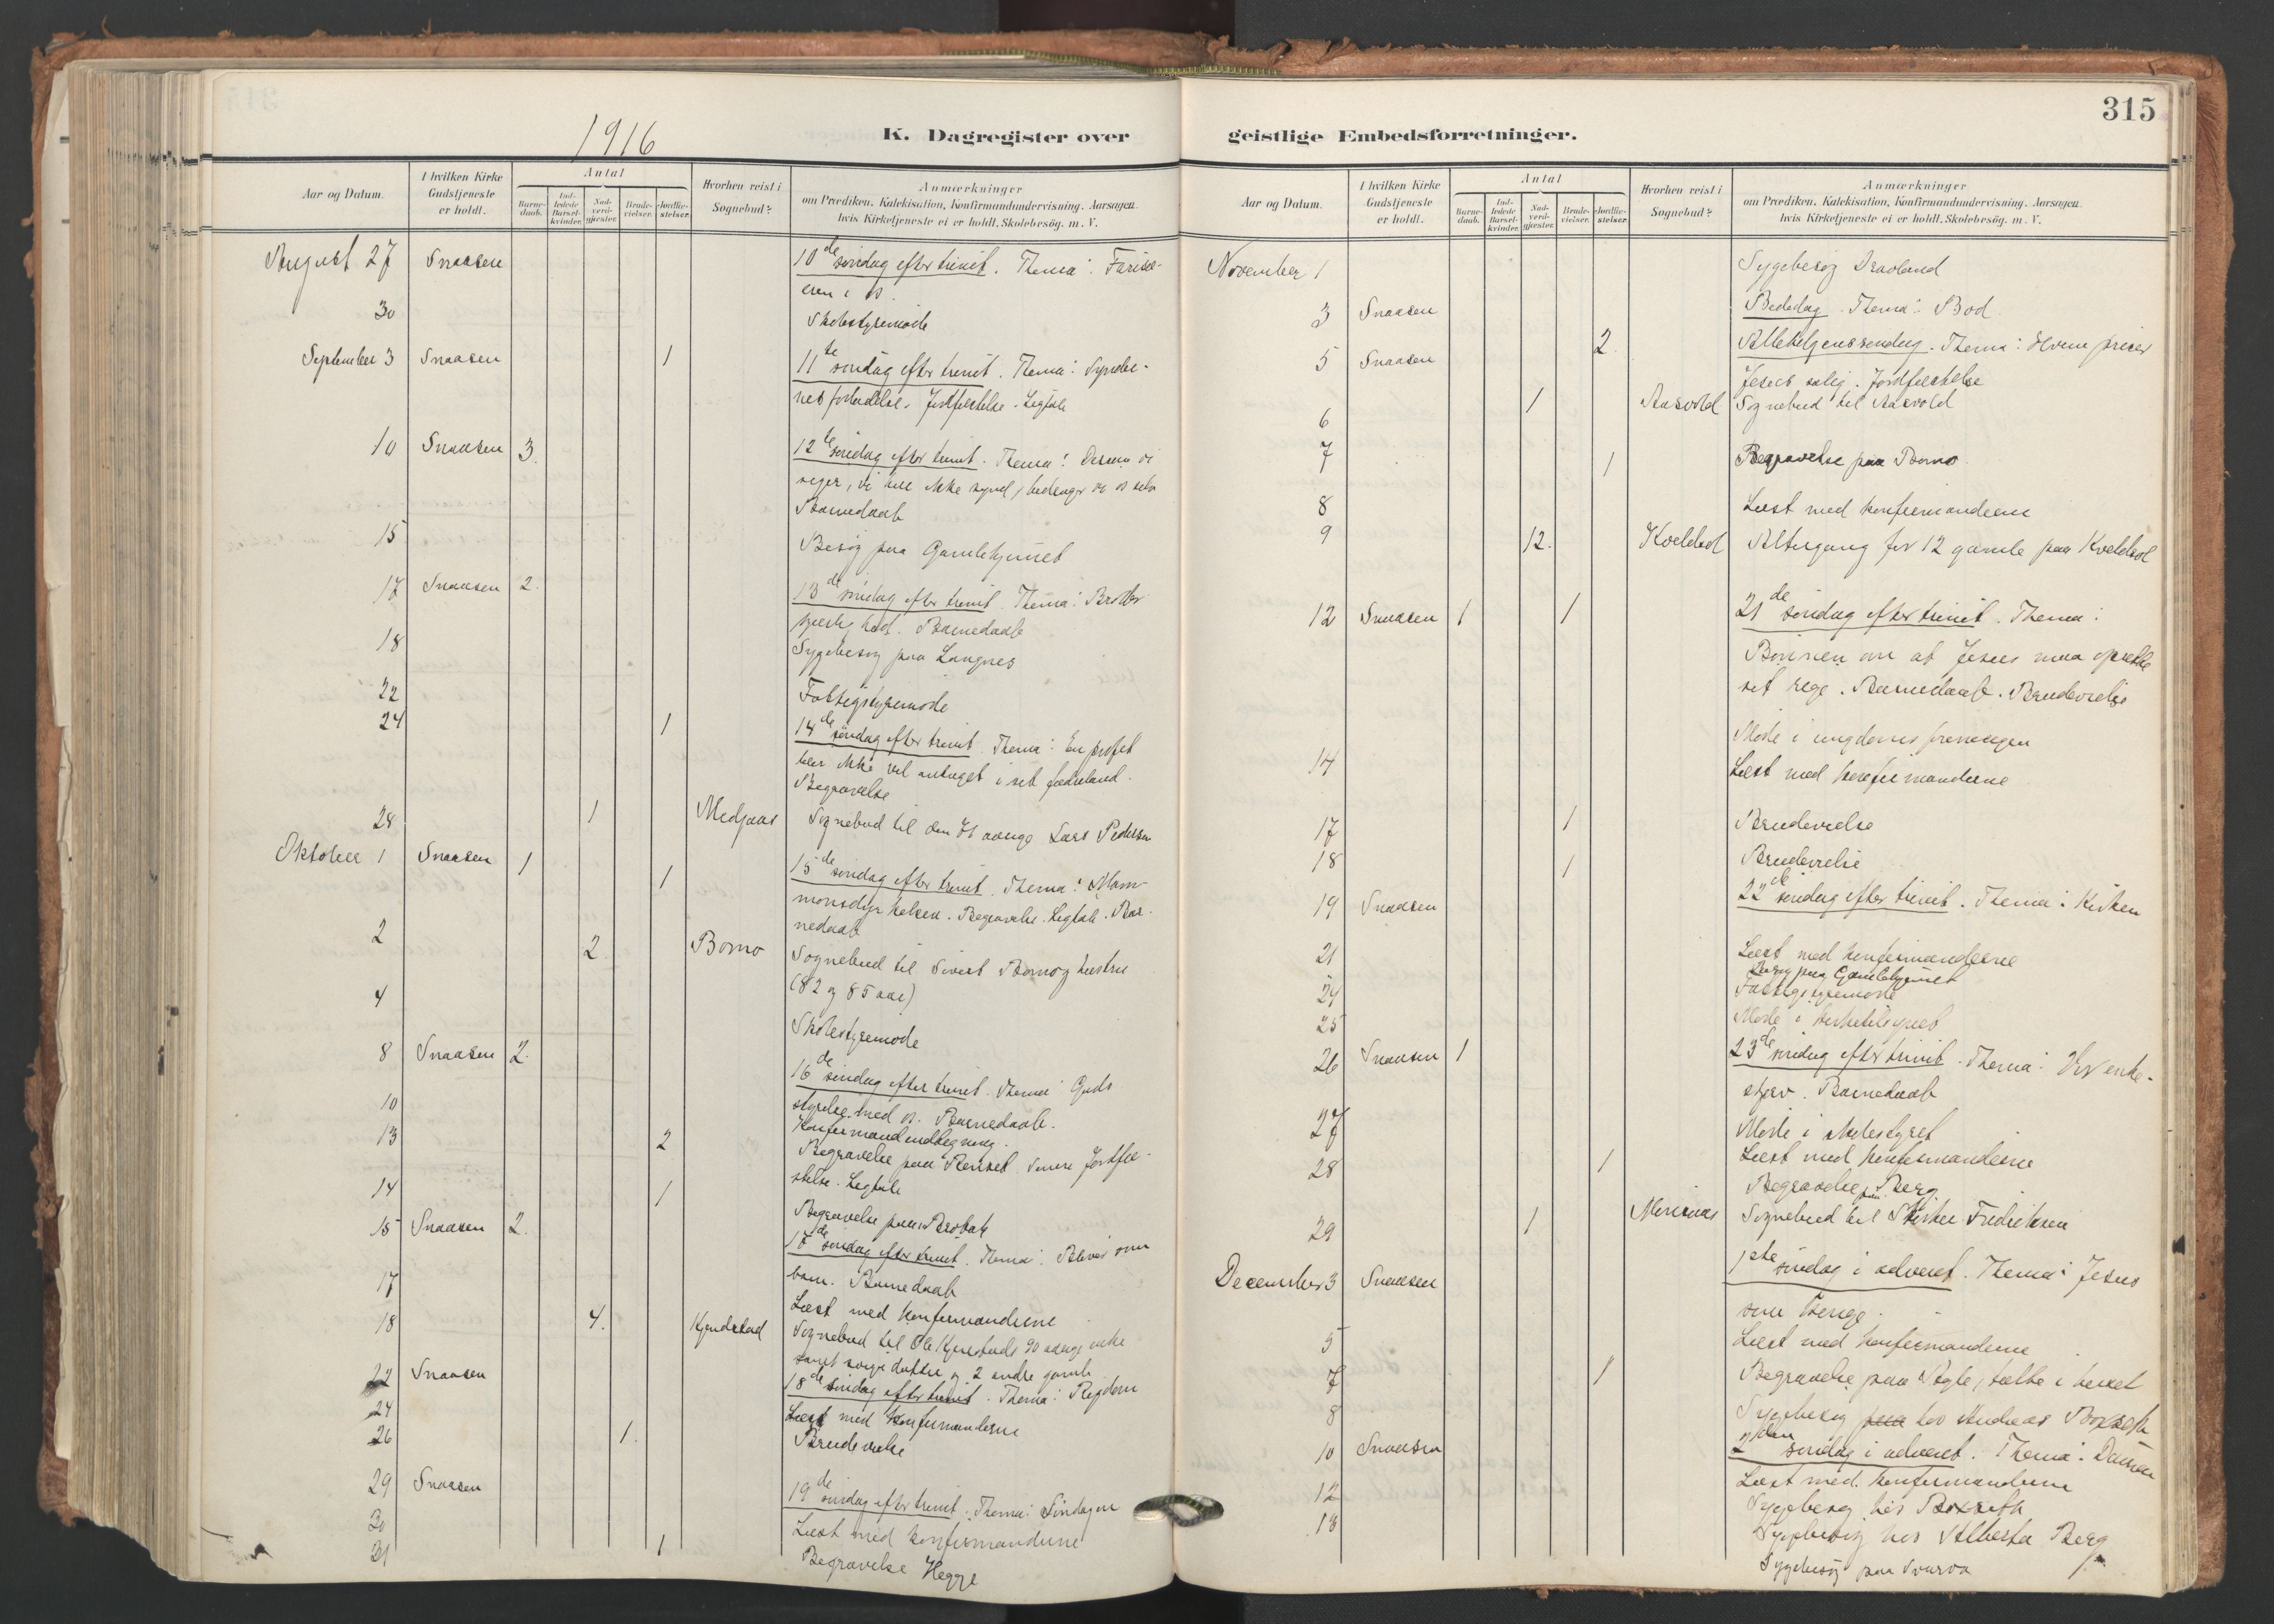 315
1916
K. Dagregister over
geistlige Embedsforretninger.
Aar og Datum.
I hvilken Kirke Gudstjeneste er holdt.
Antal
Barnedaab.
Indledede Barselkvinder.
Nadverdgjæster.
Brudevielser.
Jordfæstelser.
Hvorhen reist i Sognebud?
Anmærkninger
om Prædiken, Katekisation, Konfirmandundervisning. Aarsagen,
hvis Kirketjeneste ei er holdt, Skolebesøg. m. V.
August 27 Snaasen 10de søndag efter trinit. Thema: Farisæ-
eren i os.
30 Skolestyremöde
September 3 Snaasen 1 11te søndag efter trinit. Thema: Synder-
nes forladelse. Jordfæstelse. Ligtale
10 Snaasen 3 12te søndag efter trinit. Thema: Dersom vi
siger, vi har ikke synd, bedrager vi os selv
Barnedaab
15 Besøg paa Gamlehjemmet
17 Snaasen 2 13de søndag efter trinit. Thema: Broder
had. Barnedaab
18 Sygebesøg paa Langnes
22 Fattigstyremöde
24 1 14de søndag efter trinit. Thema: En profet
blir ikke vel antaget i sit fædreland.
Begravelse
28 1 Medjaas Sognebud til den aarige Lars Pedersen
Oktober 1 Snaasen 1 1 15de søndag efter trinit. Thema: Mam-
monsdyrkelsen. Begravelse. Ligtale. Bar-
nedaab
2 2 Bomo Sognebud til Sivert Bomo og hustru
(82 og 85 aar)
4 Skolestyremöde
8 Snaasen 2 16de søndag efter trinit. Thema: Guds
styrelse med os. Barnedaab.
10 Konfirmandindtegning.
13 2 Begravelse paa Jordfæ-
stelse. Ligtale
14 1 Begravelse paa
15 Snaasen 2 17de søndag efter trinit. Thema: som
barn. Barnedaab
17 Læst med konfirmanderne
18 4. Kjendstad Sognebud til Ole 90 aarige enke
samt svigerdatter og 2 andre gamle
22 Snaasen 18de søndag efter trinit. Thema: Rigdom
24 Læst med konfirmanderne
26 1. Brudevielse
29 Snaasen 19de søndag efter trinit. Thema: Søndagen
30 Læst med konfirmanderne
31 1 Begravelse Hegge
Aar og Datum.
I hvilken Kirke Gudstjeneste er holdt.
Antal
Barnedaab.
Indledede Barselkvinder.
Nadverdgjæster.
Brudevielser.
Jordfæstelser.
Hvorhen reist i Sognebud?
Anmærkninger
om Prædiken, Katekisation, Konfirmandundervisning. Aarsagen,
hvis Kirketjeneste ei er holdt, Skolebesøg. m. V.
November 1 Sygebesøg
3 Snaasen Bededag. Thema: Bod
5 Snaasen 2 Allehelgenssøndag. Thema: Hvem priser
Jesus salig. Jordfæstelse
6 1 Aasvold Sognebud til Aasvold
7 1 Begravelse paa Bomo
8 Læst med konfirmanderne
9 12. Kveldsol Altergang for 12 gamle paa Kveldsol
12 Snaasen 1 1 21de søndag efter trinit. Thema:
Bønnen om at Jesus maa oprette
sit rige. Barnedaab. Brudevielse
Møde i ungdomsforeningen
14 Læst med konfirmanderne
17 1 Brudevielse
18 1 Brudevielse
19 Snaasen 22de søndag efter trinit. Thema: Kirken
21 Læst med konfirmanderne
Besøg paa Gamlehjemmet
24 Fattigstyremöde
25 Møde i
26 Snaasen 1 23de søndag efter trinit. Thema: Vor enke-
Barnedaab
27 Møde i skolestyret
28 1 Læst med konfirmanderne
Begravelse paa Berg
29 1 Sognebud til Fredriksen
December 3 Snaasen 1ste søndag i advent. Thema: Jesus
som konge.
5 Læst med konfirmanderne
7 1 Begravelse paa talte i huset
8 Sygebesøg paa hos Andreas
10 Snaasen 2den søndag i advent. Thema:
12 Læst med konfirmanderne
Sygebesøg hos
18 Sygebesøg hos Alberta Berg
Sygebesøg paa